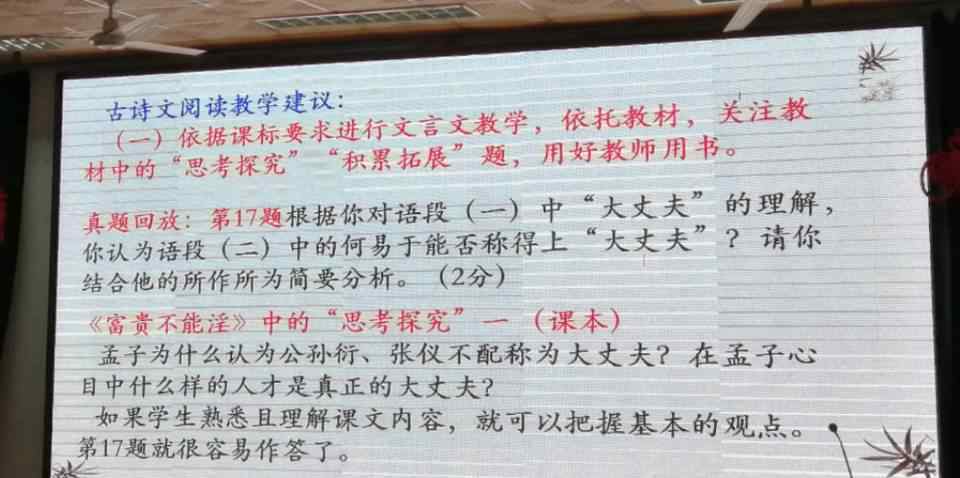 古诗文阅读教学建议：
（一）依据课标要求进行文言文教学，依托教材，关注教
材中的“思考探究”“积累拓展”题，用好教师用书。
真题回放：第17题根据你对语段（一）中“大丈夫”的理解，
你认为语段（二）中的何易于能否称得上“大丈夫”？请你
结合他的所作所为简要分析。（2分）
《富贵不能淫》中的“思考探究”一（课本）
孟子为什么认为公孙衍、张仪不配称为大丈夫？在孟子心
目中什么样的人才是真正的大丈夫？
如果学生熟悉且理解课文内容，就可以把握基本的观点。
第17题就很容易作答了。